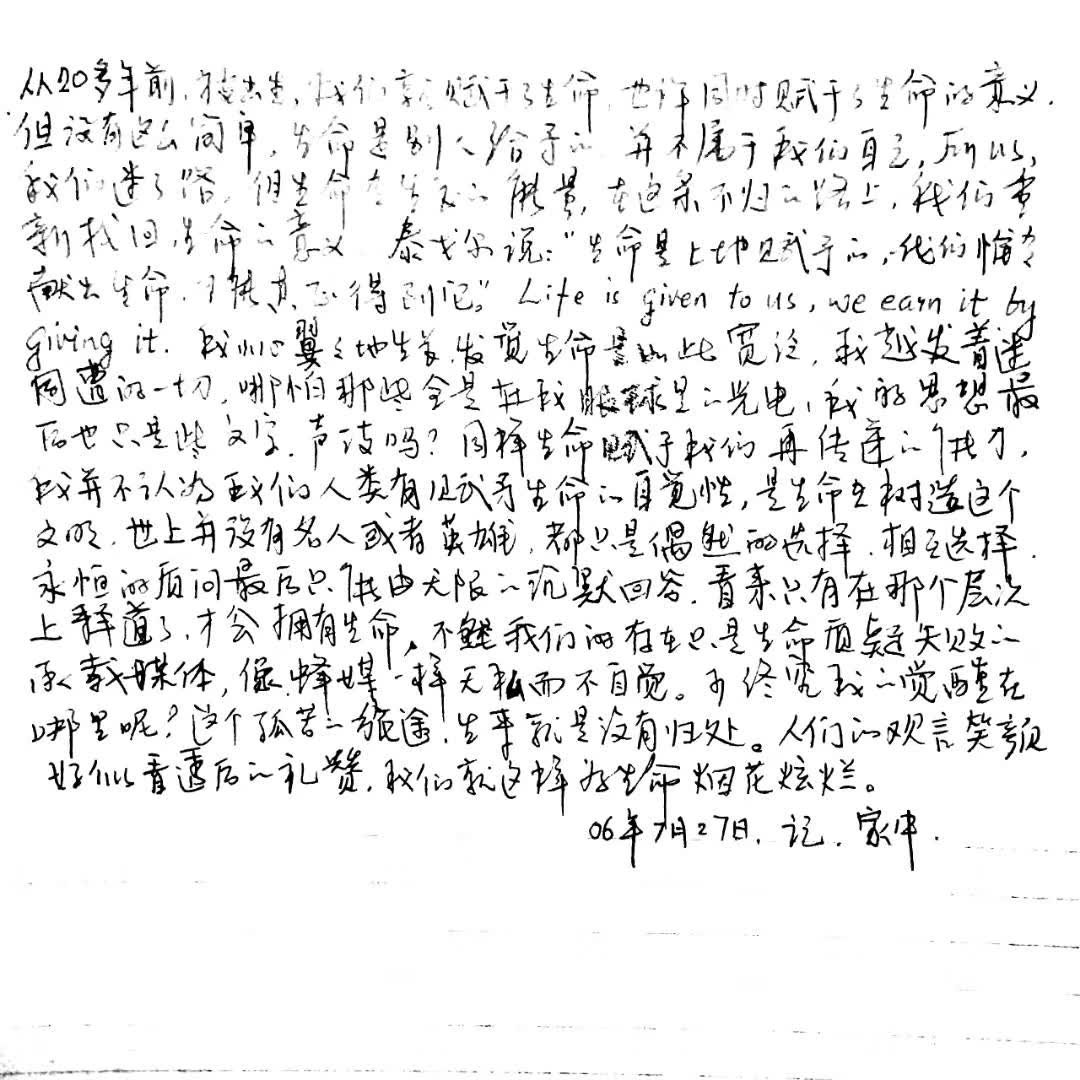 从20多年前，被出生，我们就赋于了生命，也许同时赋于了生命的意义，
但没有这么简单，生命是别人给予的，并不属于我们自己，所以，
我们迷了路，但生命在生息的能量，在这条不归的路上，我们重
新找回生命的意义，泰戈尔说："生命是上地赋于的，我们惟有
献出生命，才能真正得到它。" Life is given to us, we earn it by
giving it. 我小心翼翼地生着，发觉生命是如此宽泛，我越发着迷
周遭的一切，哪怕那些全是在我眼球里的光电，我的思想最
后也只是些文字，声波吗？同样生命赋于我们再传达的能力，
我并不认为我们人类有赋予生命的自觉性，是生命在树造这个
文明，世上并没有名人或者英雄，都只是偶然的选择，相互选择，
永恒的质问最后只能由无限的沉默回答，看来只有在那个层次
上释道了，才会拥有生命，不然我们的存在只是生命质疑失败的
承载媒体，像蜂媒一样无私而不自觉。可终究我的觉醒在
哪里呢？这个孤苦的旅途，生来就是没有归处。人们的欢言笑颜
好似看透后的礼赞，我们就这样为生命烟花炫烂。
06年7月27日，记，家中．